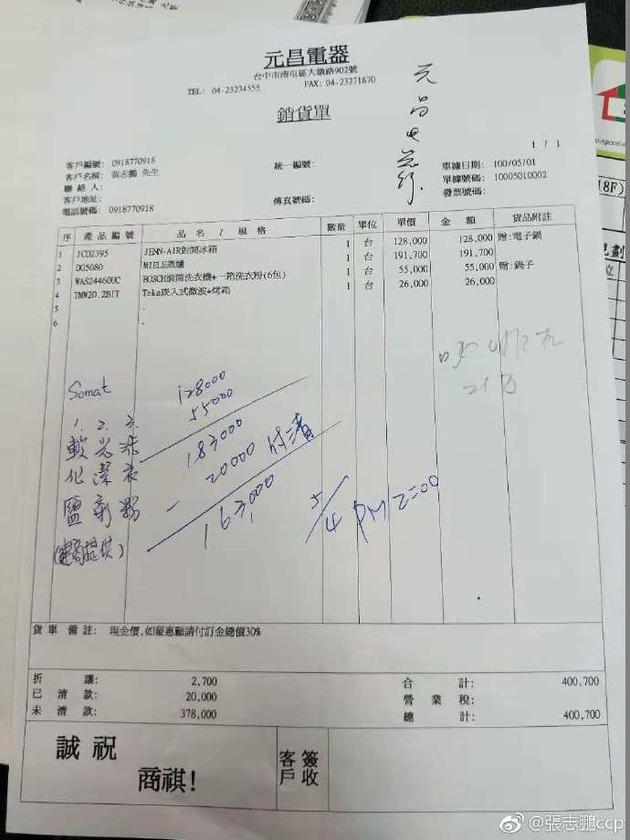 元昌電器
台中市南屯區大墩路902號
TEL: 04-23234555 FAX: 04-23271870
元昌电器行
銷貨單
1 / 1
客戶編號: 0918770918 統一編號: 單據日期: 100/05/01
客戶名稱: 張志鵬 先生 單據號碼: 10005010002
聯絡人: 發票號碼:
客戶地址: 傳真號碼:
電話號碼: 0918770918
序 產品編號 品名 / 規格 數量 單位 單價 金額 貨品附註
1 JCD2395 JENN-AIR對開冰箱 1 台 128,000 128,000 贈:電子鍋
2 DG5080 MIELE蒸爐 1 台 191,700 191,700
3 WAS24460UC BOSCH滾筒洗衣機+一箱洗衣粉(6包) 1 台 55,000 55,000 贈:鍋子
4 TMW20.2BIT Teka崁入式微波+烤箱 1 台 26,000 26,000
5 .
6 .
21万
Somat 128000
55000
1. 2. 3. 183000
軟光洗
- 20000 付清
化潔衣
163,000
鹽劑粉
5/4 PM 2:00
(建商提供)
貨單備註: 現金價,如蒙惠顧請付訂金總價30%
折讓: 2,700 合計: 400,700
已清款: 20,000 營業稅:
未清款: 378,000 總計: 400,700
誠祝
商祺!
客戶簽收
18F)
@張志鵬ccp